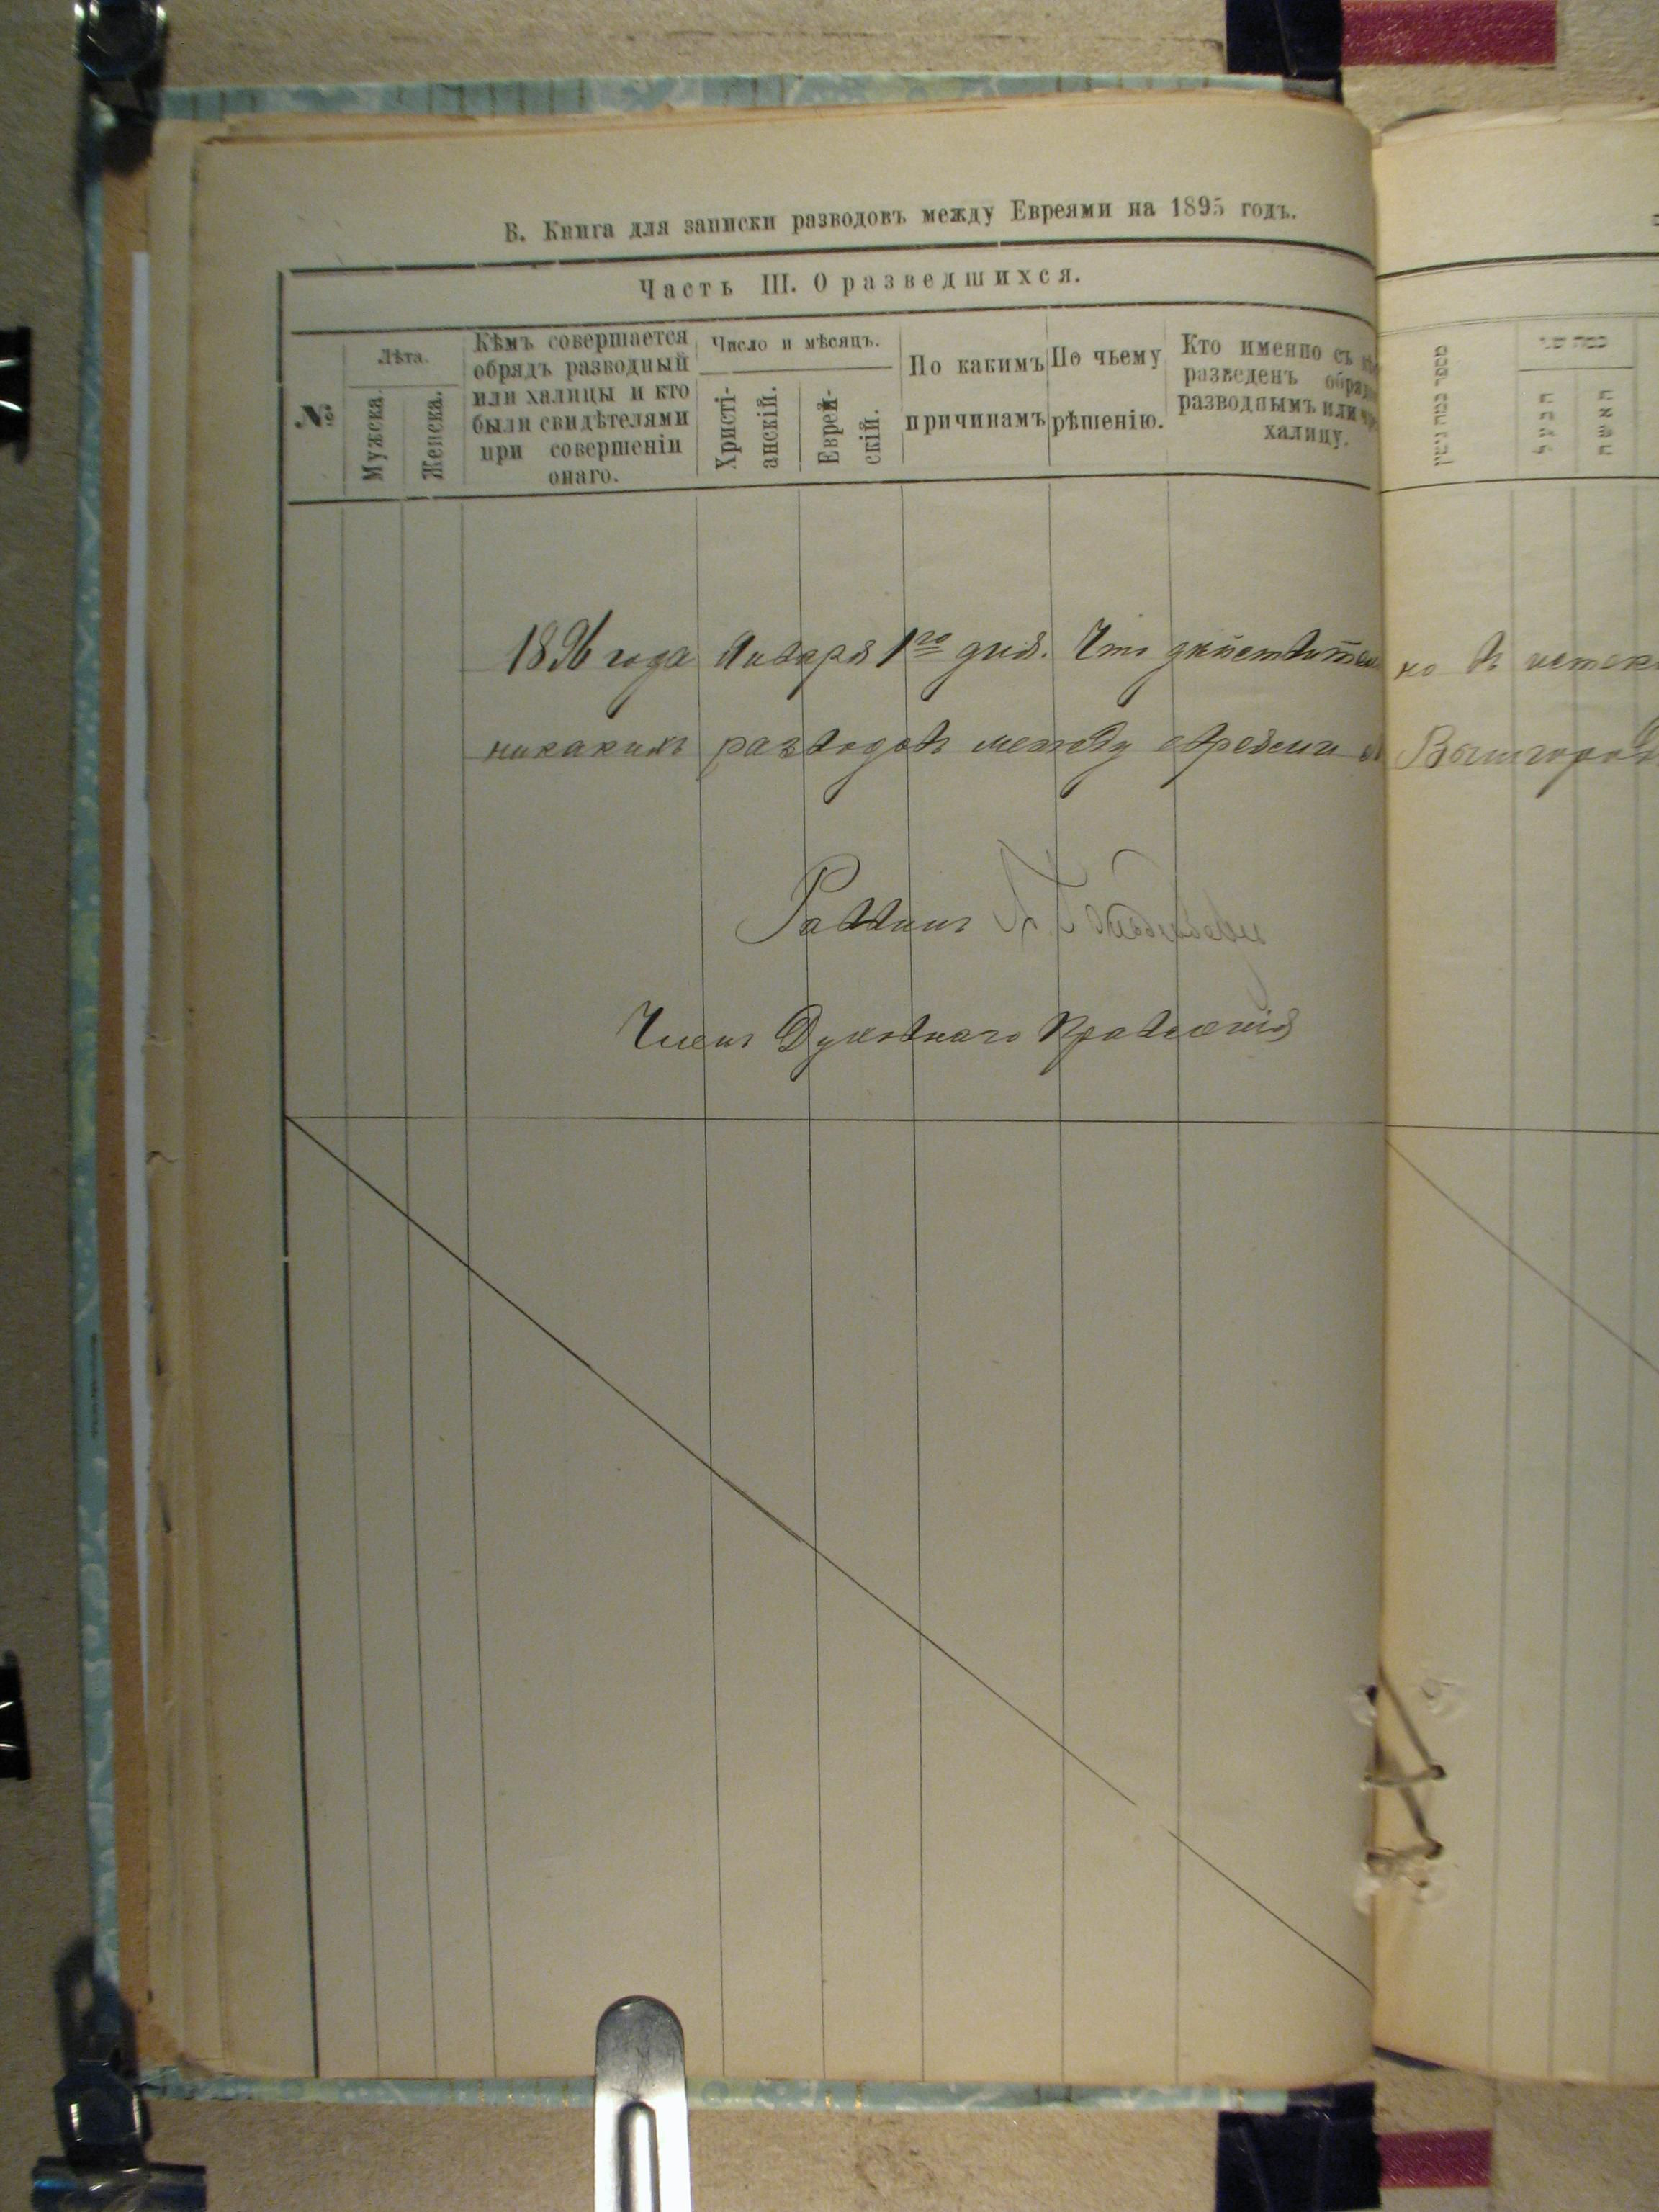 В. Книга для записки разводовъ между Евреями на 1895 годъ.
Часть III. О разведшихся.
№
Лѣта.
Мужеска.
Женска.
Кѣмъ совершается
обрядъ разводный
или халицы и кто
были свидѣтелями
при совершеніи
онаго.
Число и мѣсяцъ.
Христі-
анскій.
Еврей-
скій.
По какимъ
причинамъ
По чьему
рѣшенію.
Кто именно съ
разведенъ
разводнымъ или
халицу.
מספר כמה גטין
כמה שני
הבעל
האשה
1896 года Января 1го дня. Что дѣйствител но въ истек
никакихъ разводовъ между евреями въ Вышгород
Раввинъ
Членъ Духовнаго Правленія